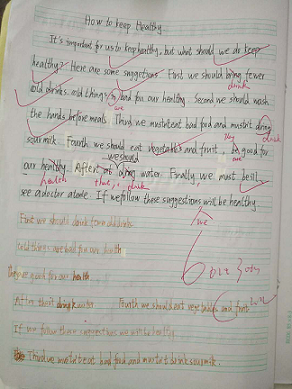 How to keep Healthy
It's important for us to keep healthy, but what should we do keep
healthy? Here are some suggestions. First we should bring fewer
drink
cold drinks. cold things is bad for our healthy. Second we should wash
are
the hands before meals. Third we mustn't eat bad food and mustn't drink
they
sour milk. Fourth we should eat vegetables and fruit. be good for
we should are
our healthy. After that drink water. Finally we must be ill
health drink
see a doctor at once. If we follow these suggestions will be healthy.
we
First we should drink fewer cold drinks
Cold things are bad for our health
They are good for our health
After that drink water Fourth we should eat vegetables and fruit
If we follow these suggestions we will be healthy
Third we mustn't eat bad food and mustn't drink sour milk.